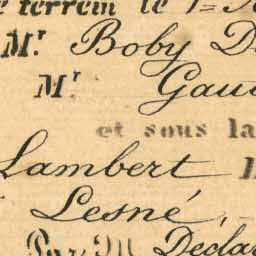 terrein le 1=
Mr. Boby
Mr Gau
et sous la
Lambert
Lesné,
Par M Decla